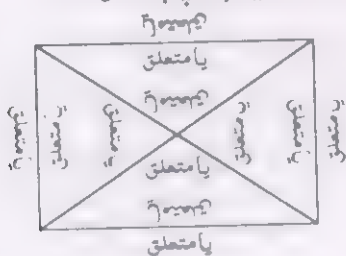 يا متعلق
يا متعلق
يا متعلق
يا متعلق
يا متعلق
يا متعلق
يا متعلق
يا متعلق
يا متعلق
يا متعلق
يا متعلق
يا متعلق